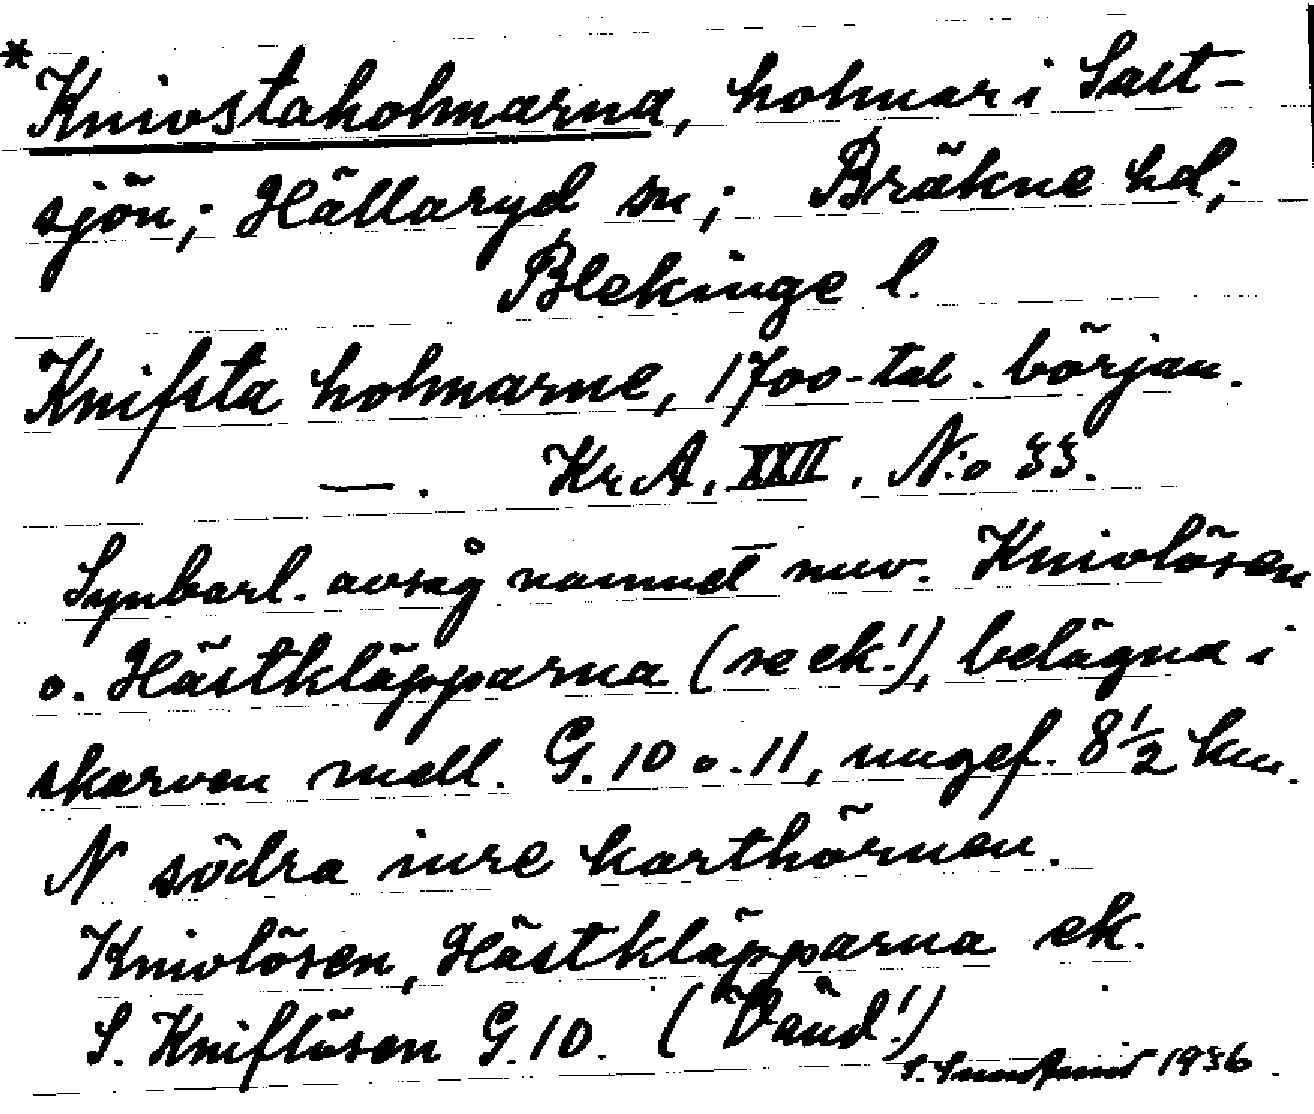 *Knivstaholmarna, holmar i Salt-
sjön; Hällaryd sn; Bräkne hd;
Blekinge l.
Knifsta holmarne, 1700-tal. början.
—. KrA, XXII, N:o 33.
Synbarl. avsåg namnet nuv. Knivlösen
o. Hästkläpparna (se ek!), belägna i
skarven mell. G. 10 o. 11, ungef. 8 1/2 km.
N södra inre karthörnen.
Knivlösen, Hästkläpparna ek.
S. Kniflösen G. 10. (Vänd!)
S. 1936.